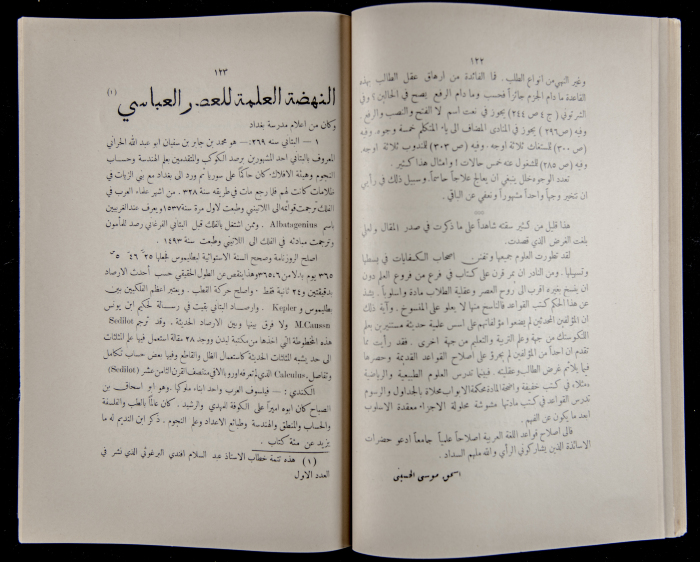 ١٢٢
وغير النهي من انواع الطلب . فما الفائدة من ارهاق عقل الطالب بهذه
القاعدة ما دام الجزم جائزاً فحسب وما دام الرفع يصح في الحالين ؟ وفي
الشرتوني ( ج ٤ ص ٢٤٤ ) يجوز في نعت اسم لا الفتح والنصب والرفع
وفيه ( ص ٢٩٦ ) يجوز في المنادى المضاف الى ياء المتكلم خمسة وجوه . وفيه
( ص ٣٠٠ ) للمستغاث ثلاثة اوجه . وفيه ( ص ٣٠٣ ) للمندوب ثلاثة اوجه
وفيه ( ص ٢٨٥ ) للمشغول عنه خمس حالات ! وامثال هذا كثير .
تعدد الوجوه خلل ينبغي ان يعالج علاجاً حاسماً . وسبيل ذلك في رأيي
ان نتخير وجهاً واحداً مشهوراً ونغفي عن الباقي .
هذا قليل من كثير سقته شاهداً على ما ذكرت في صدر المقال ولعلي
بلغت الغرض الذي قصدت .
لقد تطورت العلوم جميعها وتفنن اصحاب الكفايات في بسطها
وتسهيلها . ومن النادر ان يمر قرن على كتاب في فرع من فروع العلم دون
ان ينسخ بغيره اقرب الى روح العصر وعقلية الطلاب مادة واسلوباً . يشذ
عن هذا الحكم كتب القواعد فالناسخ منها لا يعلو على المنسوخ . وآية ذلك
ان المؤلفين المحدثين لم يضعوا مؤلفاتهم على اسس علمية حديثة مستنيرين بعلم
اللكوستك من جهة وعلم التربية والتعليم من جهة اخرى . فقد رأيت مما
تقدم ان احداً من المؤلفين لم يجرؤ على اصلاح القواعد القديمة وحصرها
فيما يلائم غرض الطالب وعقليته . فبينما تدرس العلوم الطبيعية والرياضية
مثلاً في كتب خفيفة واضحة المادة محكمة الابواب محلاة بالجداول والرسوم
تدرس القواعد في كتب مادتها مشوشة محلولة الاجزاء معقدة الاسلوب
ابعد ما يكون عن الفهم .
فالى اصلاح قواعد اللغة العربية اصلاحاً علمياً جامعاً ادعو حضرات
الاساتذة الذين يشاركونني الرأي والله ملهم السداد .
اسحق موسى الحسيني
١٢٣
النهضة العلمية للعصر العباسي (١)
وكان من اعلام مدرسة بغداد
١ — البتاني سنه ٢٦٩ :— هو محمد بن جابر بن سفيان ابو عبد الله الحراني
المعروف بالبتاني احد المشهورين برصد الكوكب والمتقدمين بعلم الهندسة وحساب
النجوم وهيئة الافلاك . كان حاكماً على سوريا ثم ورد الى بغداد مع بني الزيات في
ظلامات كانت لهم فلما رجع مات في طريقه سنة ٣٢٨ . من اشهر علماء العرب في
الفلك ترجمت قوائمه الى اللاتيني وطبعت لاول مرة سنة ١٥٣٧ ويعرف عند الغربيين
باسم Albatagenius . وممن اشتغل بالفلك قبل البتاني الفرغاني رصد للمأمون
وترجمت مبادئه في الفلك الى اللاتيني وطبعت سنة ١٤٩٣ .
اصلح الروزنامة وصحح السنة الاستوائية لبطليموس فجعلها ٢٥ ً ٤٦ َ ٥
٣٦٥ يوم بدلا من ٣٦٥،٦ وهذا ينقص عن الطول الحقيقي حسب أحدث الارصاد
بدقيقتين و ٢٤ ثانية فقط . واصلح حركة القطب . ويعتبر اعظم الفلكيين بين
بطليموس و Kepler . وارصاد البتاني بقيت في رسالة لحكيم ابن يونس
M.Caussn ولا فرق بينها وبين الارصاد الحديثة . وقد ترجم Sedilot
هذه المخطوطة التي اخذها من مكتبة ليدن ووجد ٢٨ مقالة استعمل فيها علم المثلثات
الى حد يشبه المثلثات الحديثة كاستعمال الظل والقاطع وفيها بعض حساب تكامل
وتفاضل Calculus الذي لم تعرفه اوروبا الا في منتصف القرن الثامن عشر (Sedilot)
الكندي : — فيلسوف العرب واحد ابناء ملوكها . وهو ابو اسحاق بن
الصباح كان ابوه اميراً على الكوفة للمهدي والرشيد . كان عالماً بالطب والفلسفة
والحساب والمنطق والهندسة وطبائع الاعداد وعلم النجوم . ذكر ابن النديم له ما
يزيد عن مئة كتاب .
( ١ ) هذه تتمة خطاب الاستاذ عبد السلام افندي البرغوثي الذي نشر في
العدد الاول